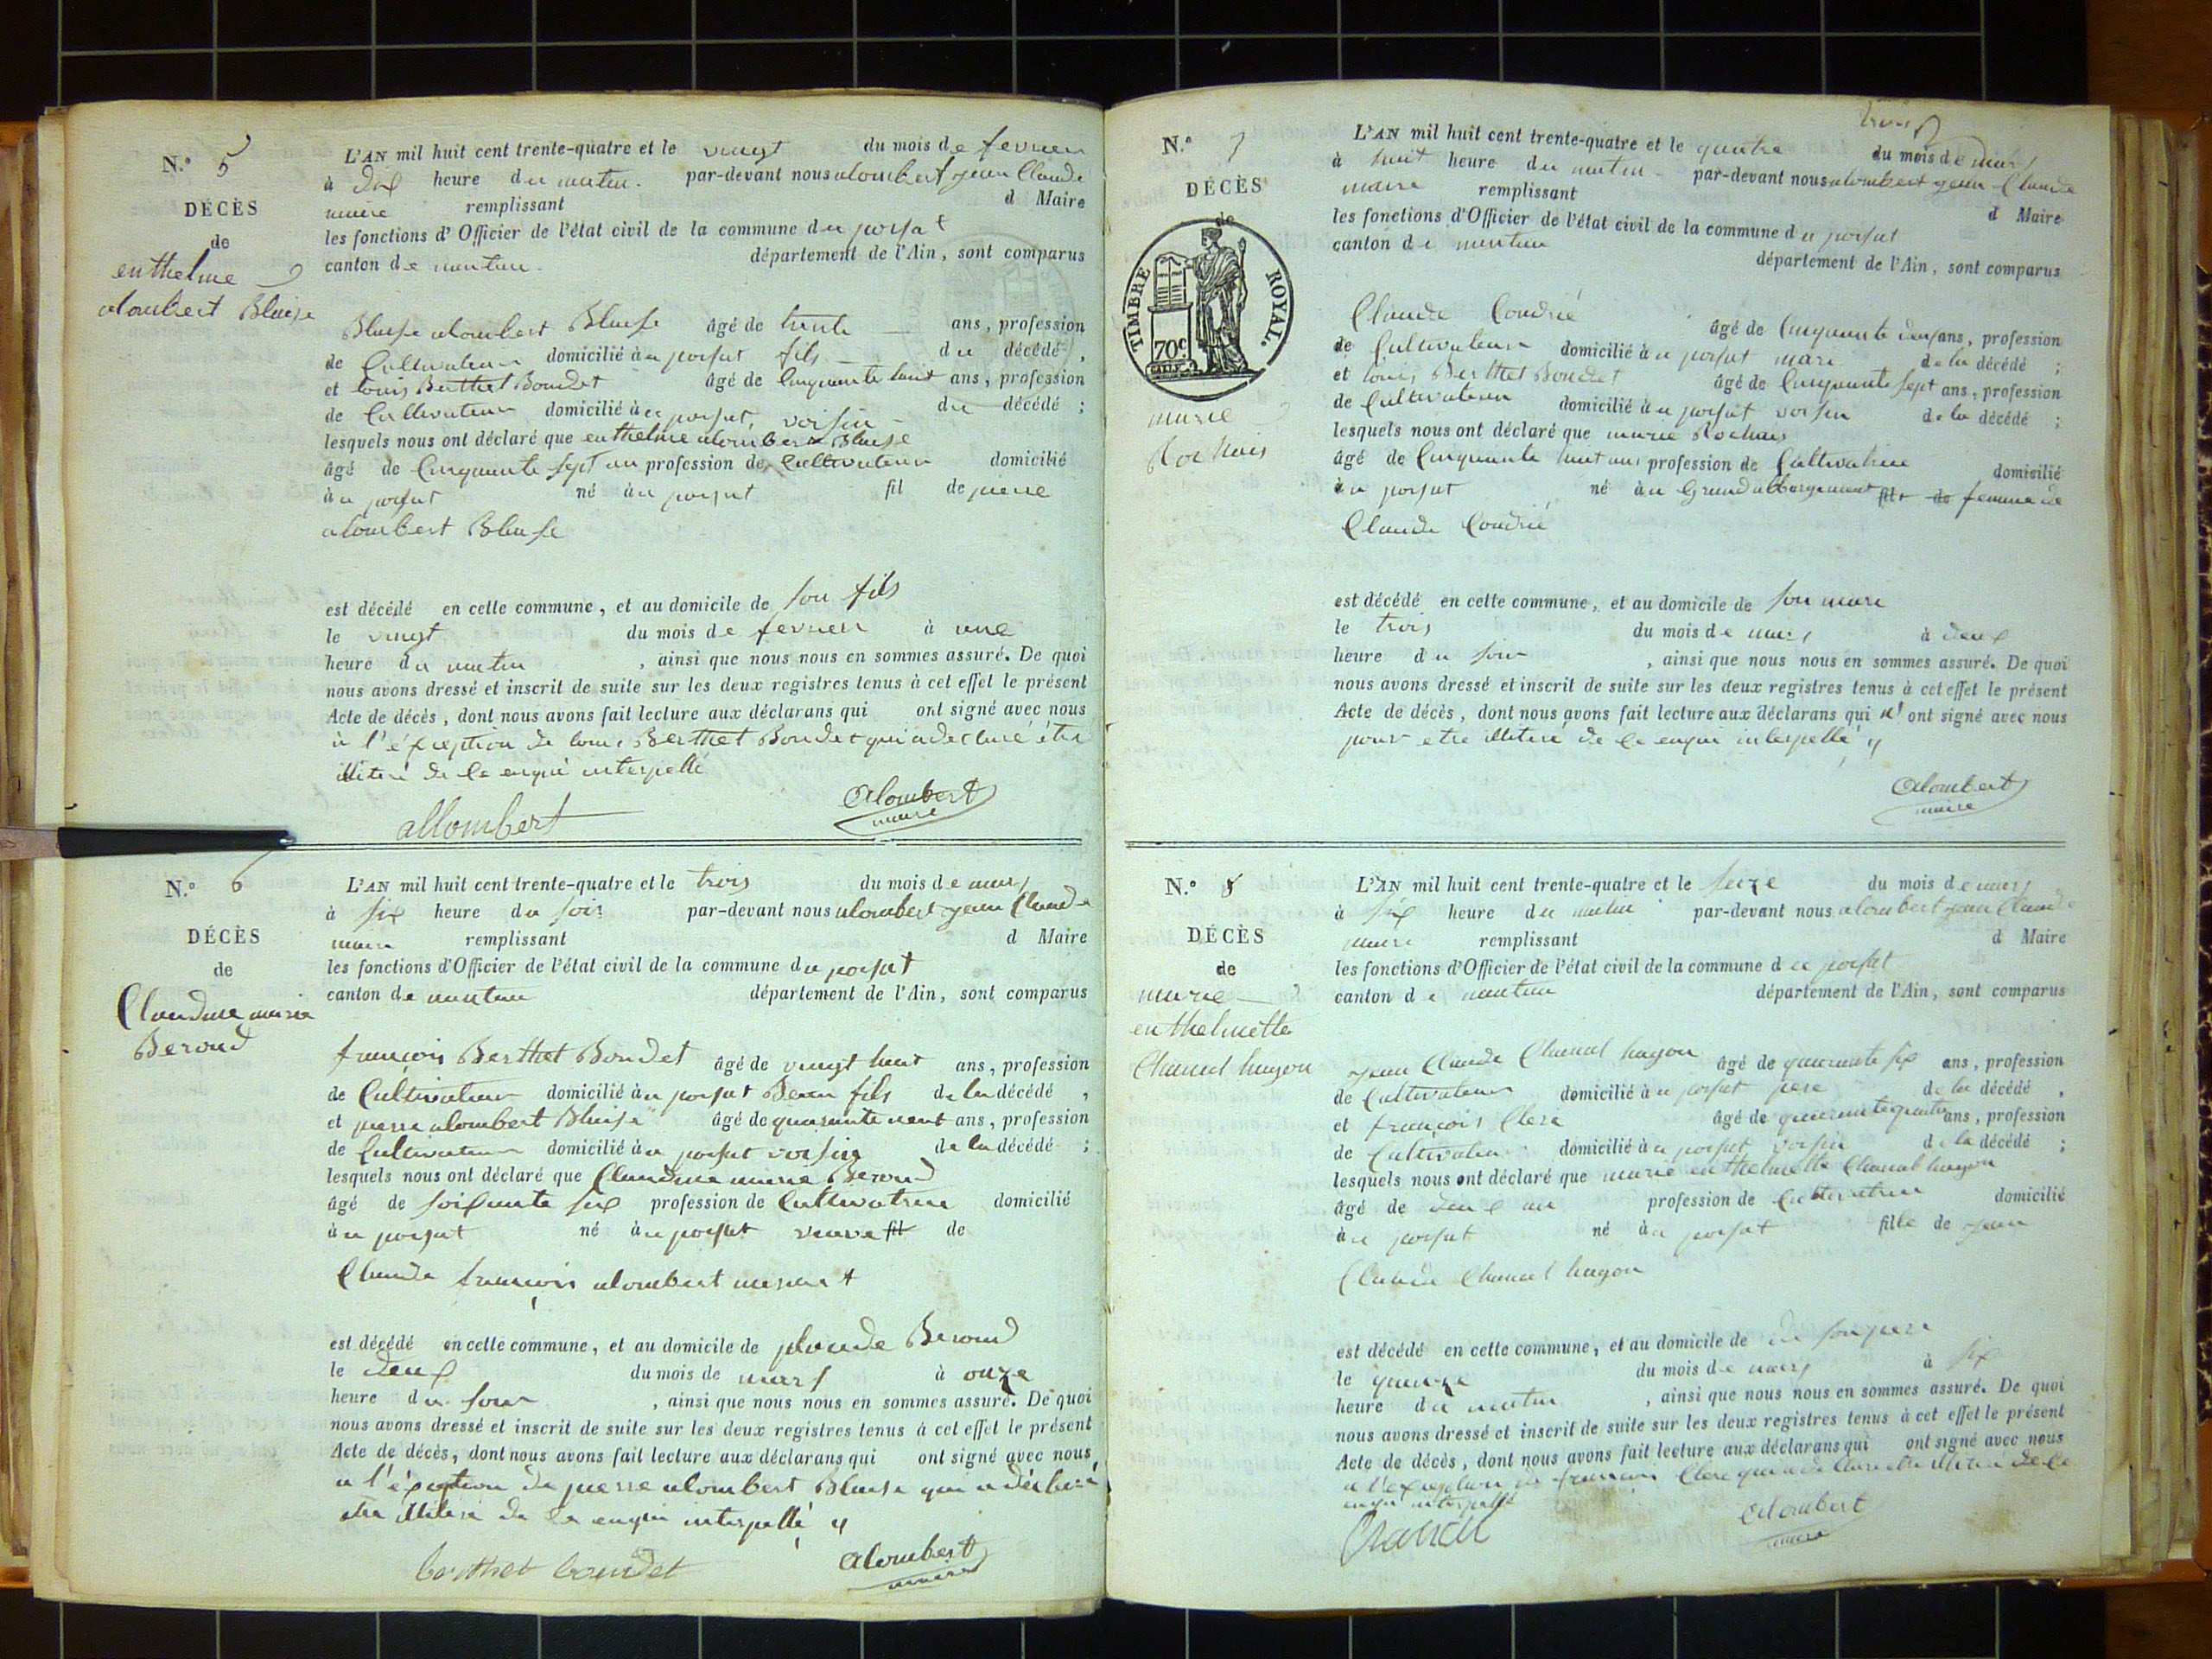 N.° 5
DÉCÈS
de
enthelme
alombert Blaise
L'AN mil huit cent trente-quatre et le vingt du mois de fevrier
à dix heure du matin. par-devant nous alombert jean Claude
maire remplissant d Maire
les fonctions d'Officier de l'état civil de la commune du porsat
canton de nantua. département de l'Ain, sont comparus
Blaise alombert Blaise âgé de trente ans, profession
de Cultivateur domicilié àu porsat fils du décédé,
et louis Berthet Bondet âgé de Cinquante huit ans, profession
de Cultivateur domicilié àu porsat voisin du décédé;
lesquels nous ont déclaré que enthelme alombert Blaise
âgé de Cinquante sept an profession de Cultivateur domicilié
àu porsat né àu porsat fil de pierre
alombert Blaise
est décédé en cette commune, et au domicile de son fils
le vingt du mois de fevrier à une
heure du matin, ainsi que nous nous en sommes assuré. De quoi
nous avons dressé et inscrit de suite sur les deux registres tenus à cet effet le présent
Acte de décès, dont nous avons fait lecture aux déclarans qui ont signé avec nous
à l'éxception de louis Berthet Bondet qui a declaré étre
illiteré de ce enquis interpellé
allombert
Alombert
maire
N.° 6
DÉCÈS
de
Claudine marie
Beroud
L'AN mil huit cent trente-quatre et le trois du mois de mars
à six heure du soir par-devant nous alombert jean Claude
maire remplissant d Maire
les fonctions d'Officier de l'état civil de la commune du porsat
canton de nantua département de l'Ain, sont comparus
françois Berthet Bondet âgé de vingt huit ans, profession
de Cultivateur domicilié àu porsat Beau fils de la décédé,
et pierre alombert Blaise âgé de quarante neuf ans, profession
de Cultivateur domicilié àu porsat voisin de la décédé;
lesquels nous ont déclaré que Claudine marie Beroud
âgé de soixante six profession de Cultivatrice domicilié
àu porsat né àu porsat veuve fil de
Claude françois alombert
est décédé en cette commune, et au domicile de Beroud
le deux du mois de mars à onze
heure du soir, ainsi que nous nous en sommes assuré. De quoi
nous avons dressé et inscrit de suite sur les deux registres tenus à cet effet le présent
Acte de décès, dont nous avons fait lecture aux déclarans qui ont signé avec nous
a l'éxception de pierre alombert Blaise qui a déclaré
etre illiteré de ce enquis interpellé
berthet boudet
Alombert
maire
N.° 7
DÉCÈS
de
TIMBRE ROYAL.
70c
marie
Rochais
L'AN mil huit cent trente-quatre et le quatre du mois de mars
à huit heure du matin par-devant nous alombert jean Claude
maire remplissant d Maire
les fonctions d'Officier de l'état civil de la commune du porsat
canton de nantua
département de l'Ain, sont comparus
Claude Coudrié âgé de Cinquante deux ans, profession
de Cultivateur domicilié àu porsat mari de la décédé;
et louis Berthet Bondet âgé de Cinquante sept ans, profession
de Cultivateur domicilié àu porsat voisin de la décédé;
lesquels nous ont déclaré que marie Rochais
âgé de Cinquante huit ans profession de Cultivatrice domicilié
àu porsat né àu Grand abbergement fil de femme de
Claude Coudrié
est décédé en cette commune, et au domicile de son mari
le trois du mois de mars à deux
heure du soir, ainsi que nous nous en sommes assuré. De quoi
nous avons dressé et inscrit de suite sur les deux registres tenus à cet effet le présent
Acte de décès, dont nous avons fait lecture aux déclarans qui n'ont signé avec nous
pour etre illiteré de ce enquis interpellé
Alombert
maire
N.°
DÉCÈS
de
marie
enthelmette
Chanel hugon
L'AN mil huit cent trente-quatre et le seize du mois de mars
à six heure du matin par-devant nous alombert jean Claude
maire remplissant d Maire
les fonctions d'Officier de l'état civil de la commune du porsat
canton de nantua département de l'Ain, sont comparus
jean Claude Chanel hugon âgé de quarante six ans, profession
de Cultivateur domicilié àu porsat pere de la décédé,
et françois Clerc âgé de quarante quatre ans, profession
de Cultivateur domicilié àu porsat voisin de la décédé;
lesquels nous ont déclaré que marie enthelmette Chanel hugon
âgé de deux an profession de Cultivatrice domicilié
àu porsat né àu porsat fille de jean
Claude Chanel hugon
est décédé en cette commune, et au domicile de de son pere
le quinze du mois de mars à six
heure du matin, ainsi que nous nous en sommes assuré. De quoi
nous avons dressé et inscrit de suite sur les deux registres tenus à cet effet le présent
Acte de décès, dont nous avons fait lecture aux déclarans qui ont signé avec nous
a l'exception de françois Clerc qui a declaré etre illiteré de ce
enquis interpellé
Chanel
Alombert
maire